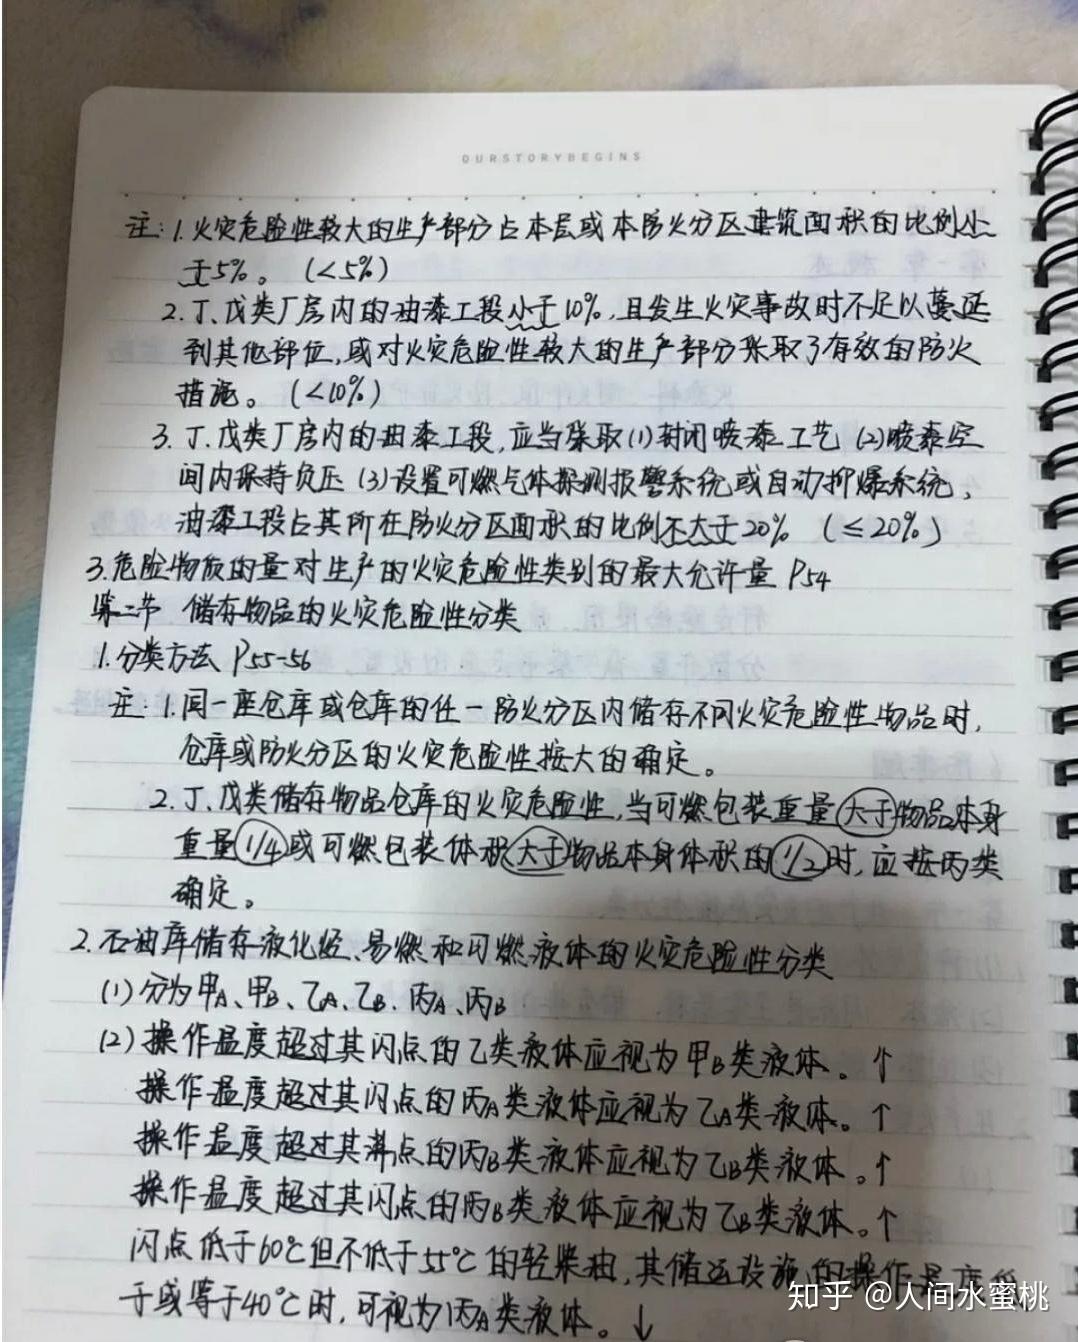 OURSTORYBEGINS
注:1.火灾危险性较大的生产部分占本层或本防火分区建筑面积的比例小
于5%。(<5%)
2.丁、戊类厂房内的油漆工段小于10%,且发生火灾事故时不足以蔓延
到其他部位,或对火灾危险性较大的生产部分采取了有效的防火
措施。(<10%)
3.丁、戊类厂房内的油漆工段,应当采取(1)封闭喷漆工艺(2)喷漆空
间内保持负压(3)设置可燃气体探测报警系统或自动抑爆系统,
油漆工段占其所在防火分区面积的比例不大于20% (≤20%)
3.危险物质的量对生产的火灾危险性类别的最大允许量 P54
第二节 储存物品的火灾危险性分类
1.分类方法 P55-56
注:1.同一座仓库或仓库的任一防火分区内储存不同火灾危险性物品时,
仓库或防火分区的火灾危险性按大的确定。
2.丁、戊类储存物品仓库的火灾危险性,当可燃包装重量大于物品本身
重量1/4或可燃包装体积大于物品本身体积的1/2时,应按丙类
确定。
2.石油库储存液化烃、易燃和可燃液体的火灾危险性分类
(1)分为甲A、甲B、乙A、乙B、丙A、丙B
(2)操作温度超过其闪点的乙类液体应视为甲B类液体。↑
操作温度超过其闪点的丙A类液体应视为乙A类液体。↑
操作温度超过其沸点的丙B类液体应视为乙B类液体。↑
操作温度超过其闪点的丙B类液体应视为乙B类液体。↑
闪点低于60℃但不低于55℃的轻柴油,其储运设施的操作温度低
于或等于40℃时,可视为丙A类液体。↓
知乎 @人间水蜜桃